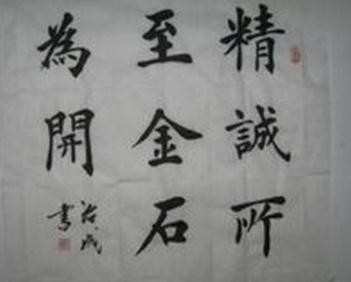 精誠所
至金石
為開
治成
書